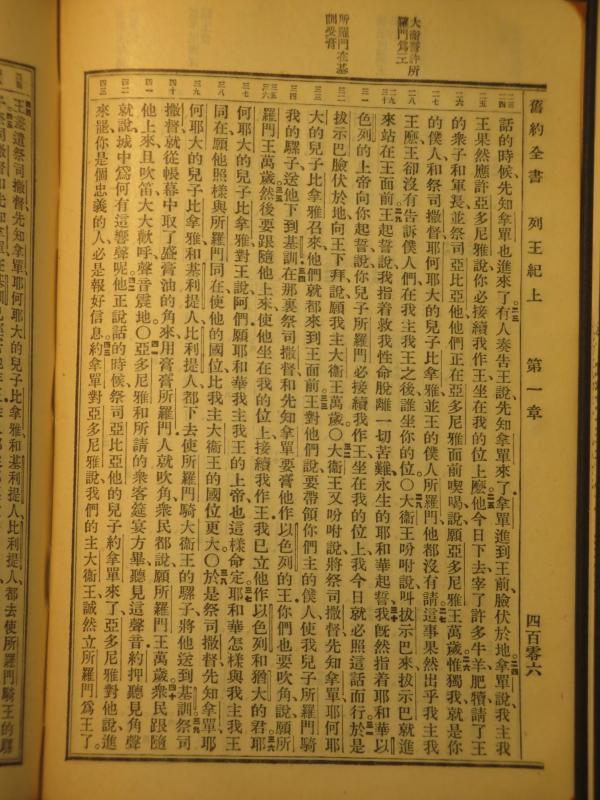 大衞誓許所
羅門爲王
所羅門在基
訓受膏
舊約全書 列王紀上 第一章 四百零六
話的時候先知拿單也進來了有人奏告王說先知拿單來了拿單進到王前臉伏於地拿單說我主我
王果然應許亞多尼雅說你必接續我作王坐在我的位上麽他今日下去宰了許多牛羊肥犢請了王
的衆子和軍長並祭司亞比亞他他們正在亞多尼雅面前喫喝說願亞多尼雅王萬歲惟獨我就是你
的僕人和祭司撒督耶何耶大的兒子比拿雅並王的僕人所羅門他都沒有請這事果然出乎我主我
王麽王卻沒有告訴僕人們在我主我王之後誰坐你的位〇大衞王吩咐說叫拔示巴來拔示巴就進
來站在王面前王起誓說我指着救我性命脫離一切苦難永生的耶和華起誓我旣然指着耶和華以
色列的上帝向你起誓說你兒子所羅門必接續我作王坐在我的位上我今日就必照這話而行於是
拔示巴臉伏於地向王下拜說願我主大衞王萬歲〇大衞王又吩咐說將祭司撒督先知拿單耶何耶
大的兒子比拿雅召來他們就都來到王面前王對他們說要帶領你們主的僕人使我兒子所羅門騎
我的騾子送他下到基訓在那裏祭司撒督和先知拿單要膏他作以色列的王你們也要吹角說願所
羅門王萬歲然後要跟隨他上來使他坐在我的位上接續我作王我已立他作以色列和猶大的君耶
何耶大的兒子比拿雅對王說阿們願耶和華我主我王的上帝也這樣命定耶和華怎樣與我主我王
同在願他照樣與所羅門同在使他的國位比我主大衞王的國位更大〇於是祭司撒督先知拿單耶
何耶大的兒子比拿雅和基利提人比利提人都下去使所羅門騎大衞王的騾子將他送到基訓祭司
撒督就從帳幕中取了盛膏油的角來用膏膏所羅門人就吹角衆民都說願所羅門王萬歲衆民跟隨
他上來且吹笛大大歡呼聲音震地〇亞多尼雅和所請的衆客筵宴方畢聽見這聲音約押聽見角聲
就說城中爲何有這響聲呢他正說話的時候祭司亞比亞他的兒子約拿單來了亞多尼雅對他說進
來罷你是個忠義的人必是報好信息約拿單對亞多尼雅說我們的主大衞王誠然立所羅門爲王了。
王差遣祭司撒督先知拿單耶何耶大的兒子比拿雅和基利提人比利提人都去使所羅門騎王的騾